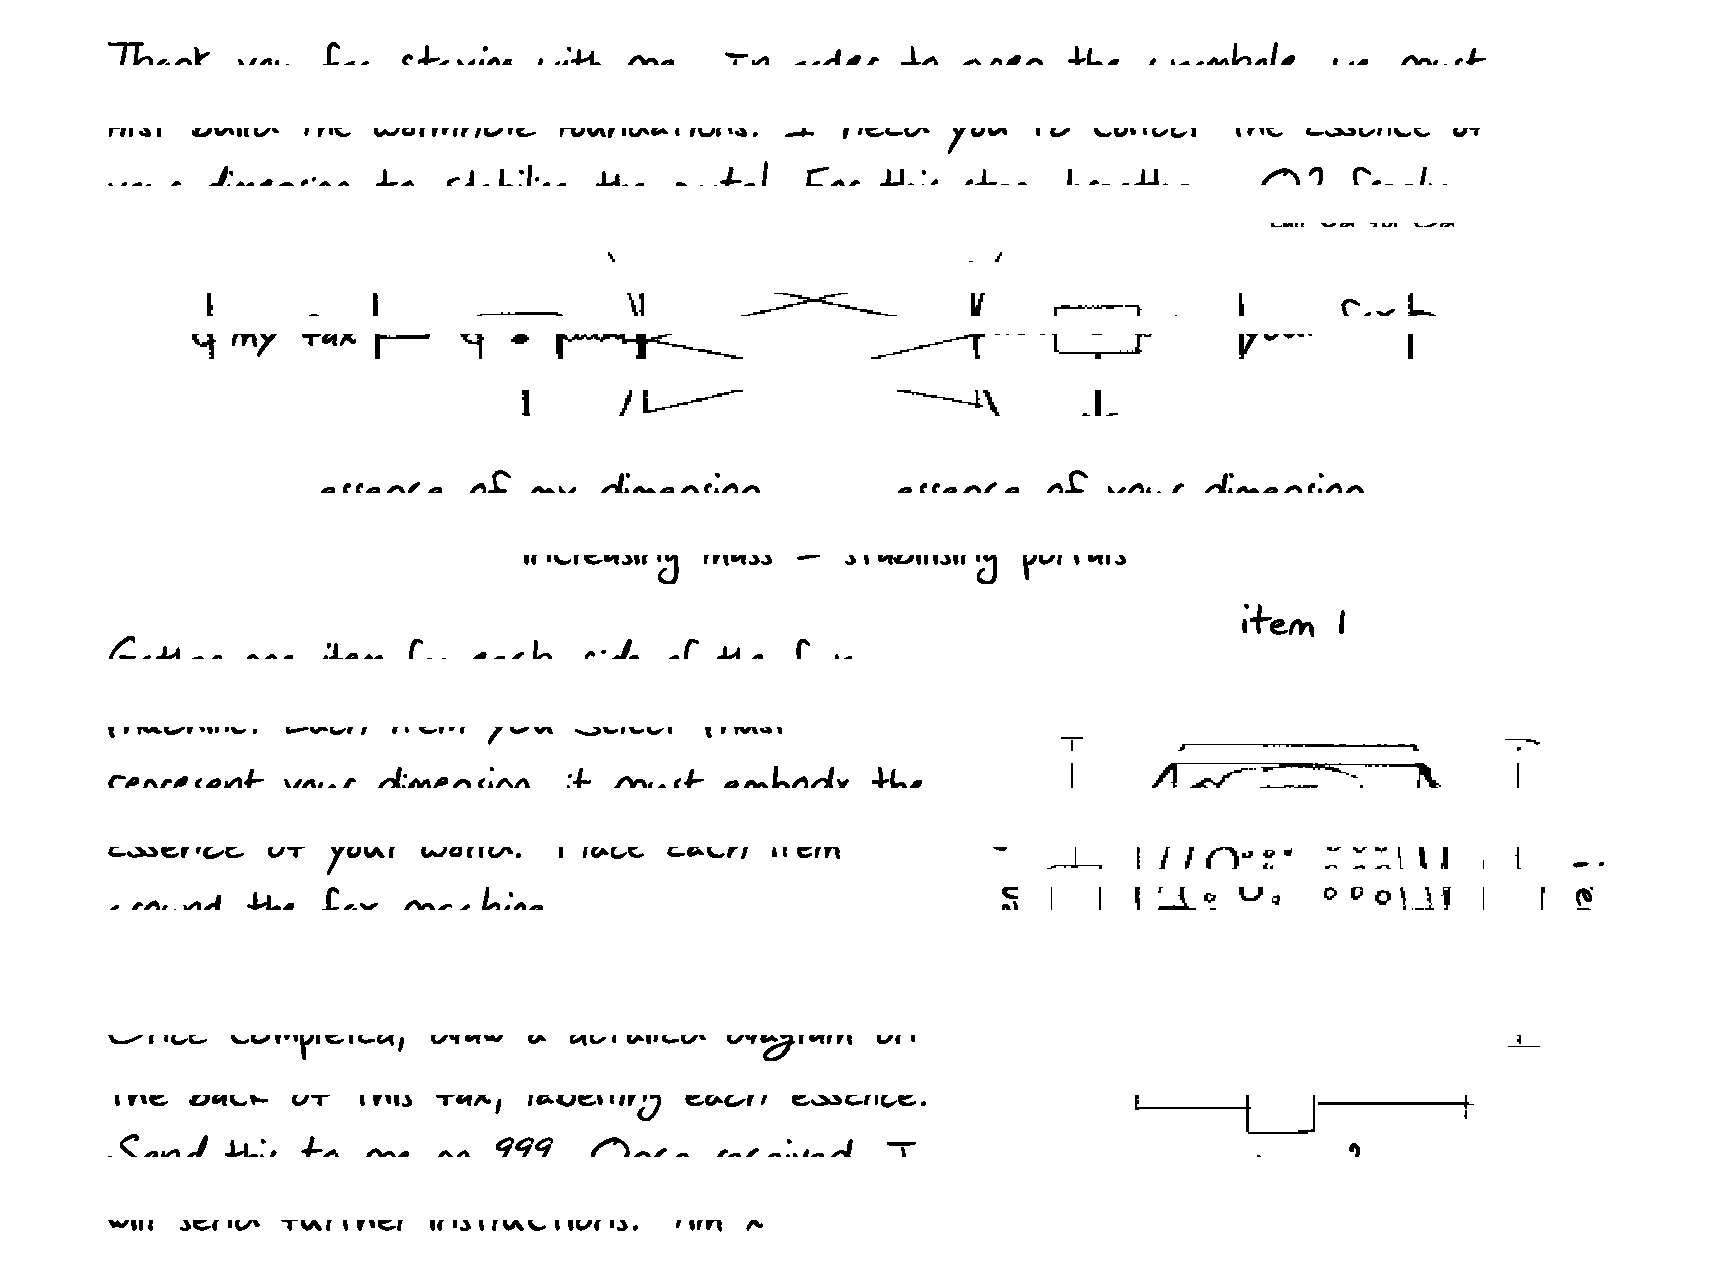 Thank you for staying with me. In order to open the wormhole, we must
first build the wormhole foundations. I need you to collect the essence of
your dimension to stabilise the portal. For this step, together
my fax
your
essence of my dimension essence of your dimension
increasing mass = stabilising portals
item 1
Gather one item for each side of the fax
machine. Each item you select must
represent your dimension, it must embody the
essence of your world. Place each item
around the fax machine
Once completed, draw a detailed diagram on
the back of this fax, labelling each essence.
Send this to me on 999. Once received, I
will send further instructions.